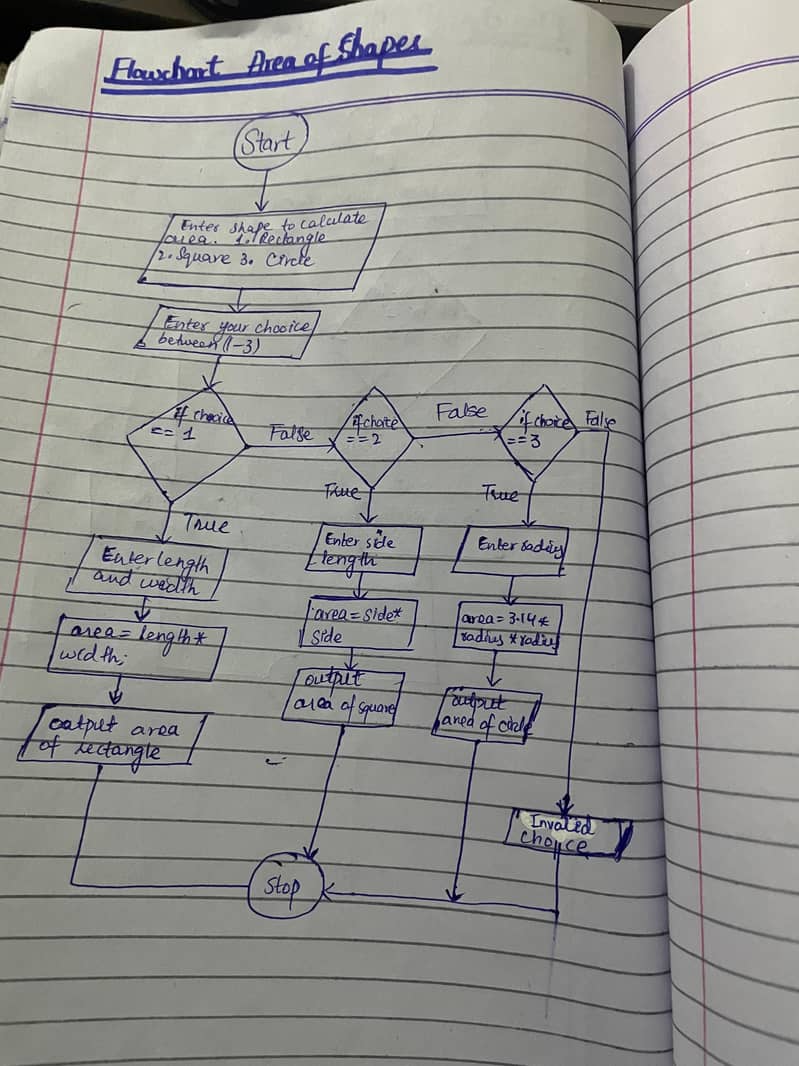 Flowchart Area of Shapes
Start
Enter shape to calculate
area. 1. Rectangle
2. Square 3. Circle
Enter your chooice
between (1-3)
if choice
== 1
False
if choice
==2
False
if choice
==3
False
True
True
True
Enter length
and width
Enter side
length
Enter radius
area = length *
width;
area = side*
side
area = 3.14 *
radius * radius
output area
of rectangle
output
area of square
output
area of circle
Invalid
choice
Stop